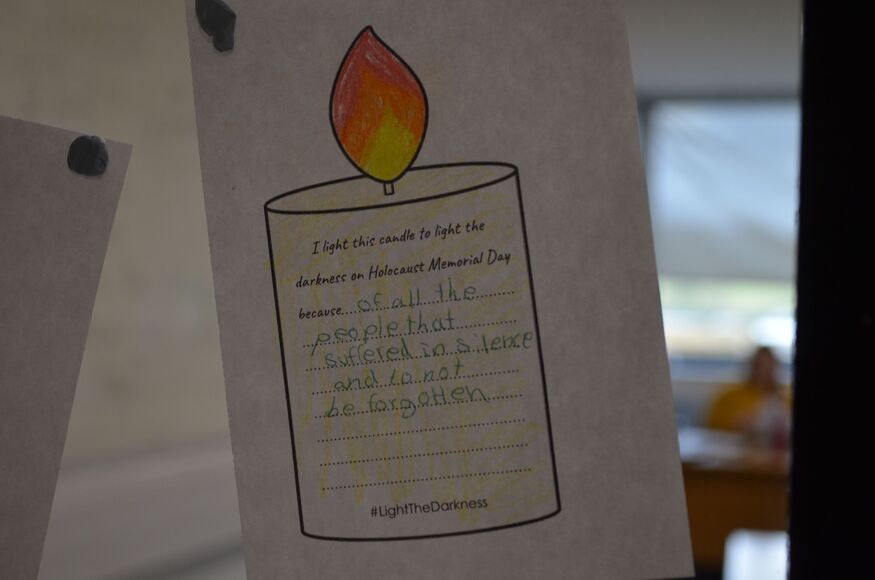 I light this candle to light the
darkness on Holocaust Memorial Day
because of all the
people that
suffered in silence
and to not
be forgotten
#LightTheDarkness